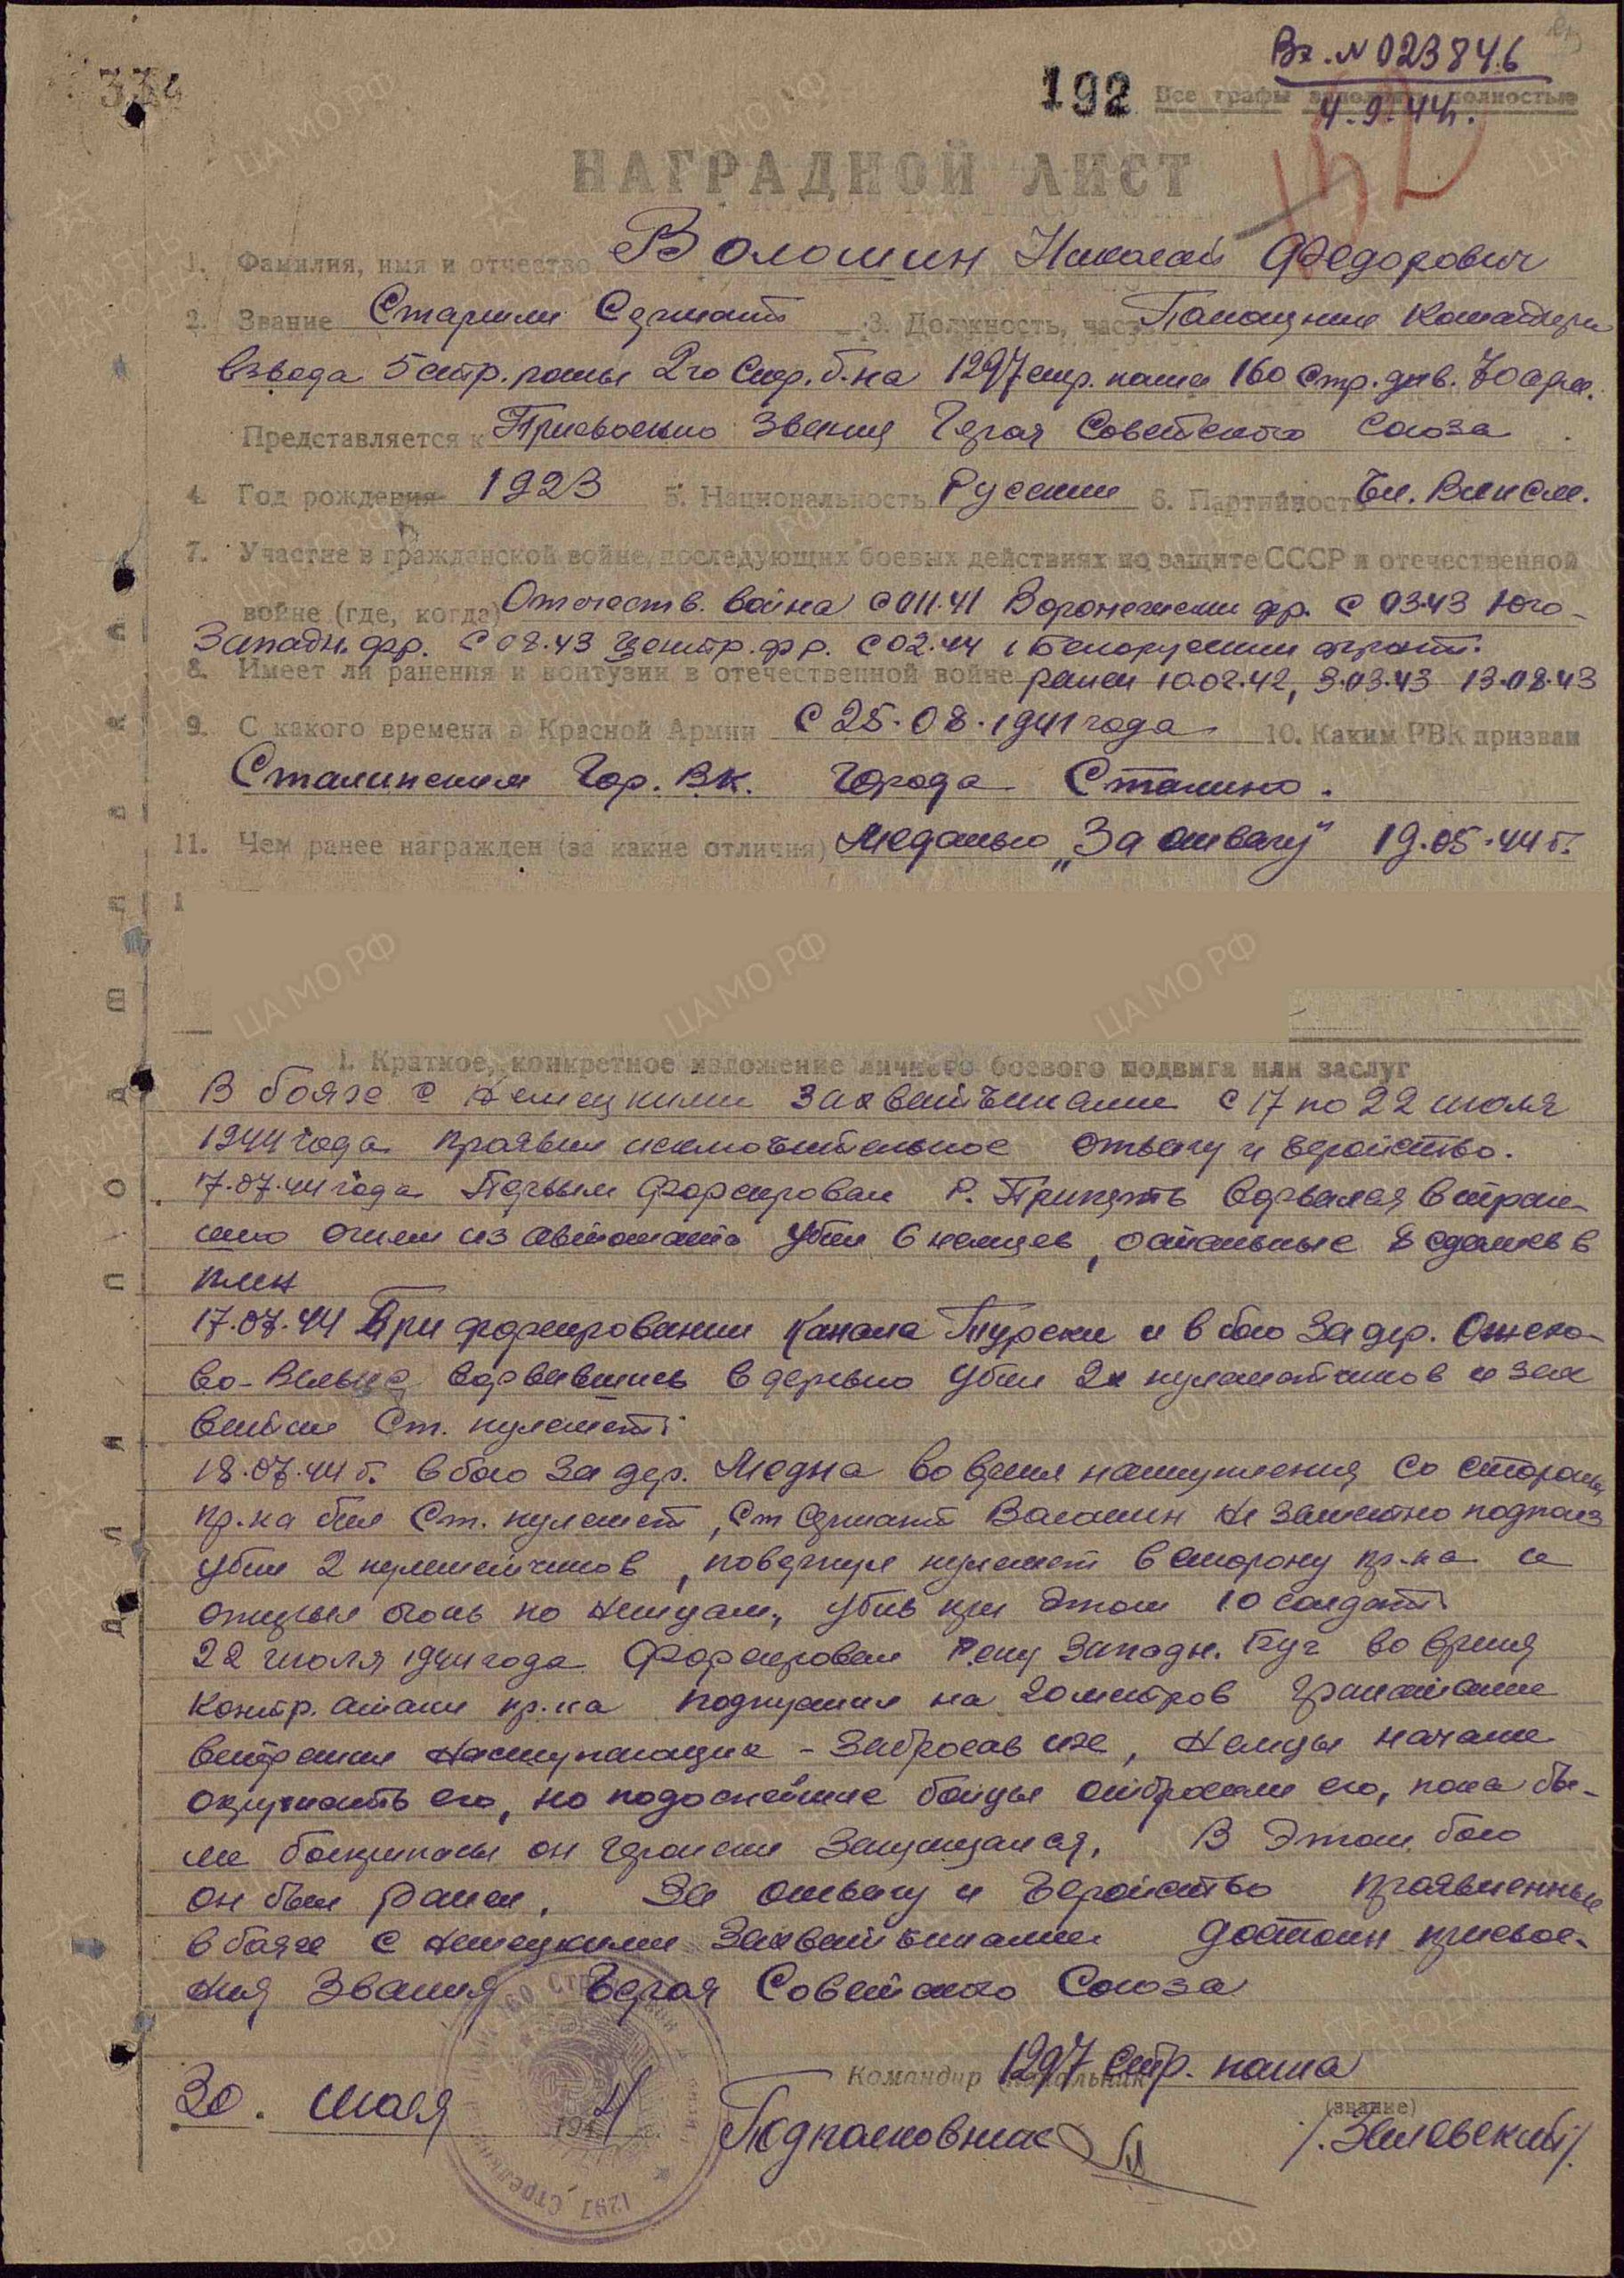 Вх. N 023846
334
192 Все графы заполнять полностью
4.9.44г.
НАГРАДНОЙ ЛИСТ
1. Фамилия, имя и отчество Волошин Николай Федорович
2. Звание Старший Сержант 3. Должность, часть Помощник Командира
взвода 5 стр. роты 2го Стр. б-на 1297 стр. полка 160 Стр. див. 70 арм.
Представляется к Присвоению Звания Героя Советского Союза
4. Год рождения 1923 5. Национальность Русский 6. Партийность Чл. ВЛКСМ.
7. Участие в гражданской войне, последующих боевых действиях по защите СССР и отечественной
войне (где, когда) Отечеств. война с 011.41 Воронежский фр. с 03.43 Юго-
Западн. фр. с 08.43 Центр. фр. с 02.44 1 Белорусский фронт.
8. Имеет ли ранения и контузии в отечественной войне ранен 10.02.42, 3.03.43 13.08.43
9. С какого времени в Красной Армии С 25.08.1941 года 10. Каким РВК призван
Сталинским Гор. В.К. Города Сталино.
11. Чем ранее награжден (за какие отличия) Медалью „За отвагу" 19.05.44 г.
1. Краткое, конкретное изложение личного боевого подвига или заслуг
В боях с Немецкими захватчиками с 17 по 22 июля
1944 года проявил исключительное отвагу и геройство.
17.07.44 года Первым форсировал р. Припять ворвался в тран-
шею огнем из автомата убил 6 немцев, остальные 8 сдались в
плен
17.07.44 При форсировании Канала Турски и в бою за дер.
ворвавшись в деревню убил 2х пулеметчиков и зах
ватил Ст. пулемет.
18.07.44 г. в бою за дер. Медна во время наступления со стороны
пр-ка бил Ст. пулемет, Ст Сержант Волошин не заметно подполз
убил 2 пулеметчиков, повернул пулемет в сторону пр-ка и
открыл огонь по немцам, убив при этом 10 солдат.
22 июля 1944 года Форсировал Реку Западн. Буг во время
контр. атаки пр-ка подпустил на 20 метров гранатами
встретил наступающих - забросав их, Немцы начали
окружать его, но подоспевшие бойцы отбросили его, пока бы-
ли боеприпасы он геройски защищался. В этом бою
он был ранен. За отвагу и геройство проявленные
в боях с немецкими захватчиками достоин присвое-
ния Звания Героя Советского Союза
Командир (начальник) 1297 Стр. полка
(звание)
30. июля 1944 г.
Подполковник /.Зиловский/